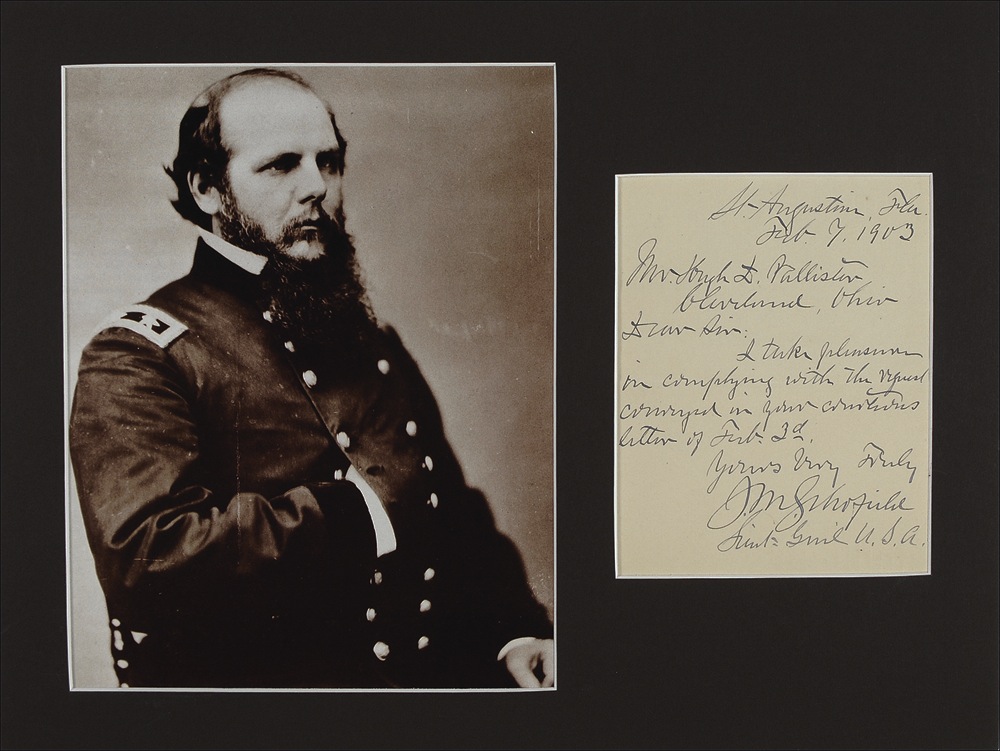 St. Augustine, Fla.
Feb. 7, 1903
Mr. Hugh D. Pallister
Cleveland, Ohio
Dear Sir:
I take pleasure
in complying with the request
conveyed in your courteous
letter of Feb. 3d.
Yours Very Truly
J. M. Schofield
Lieut. Genl. U.S.A.